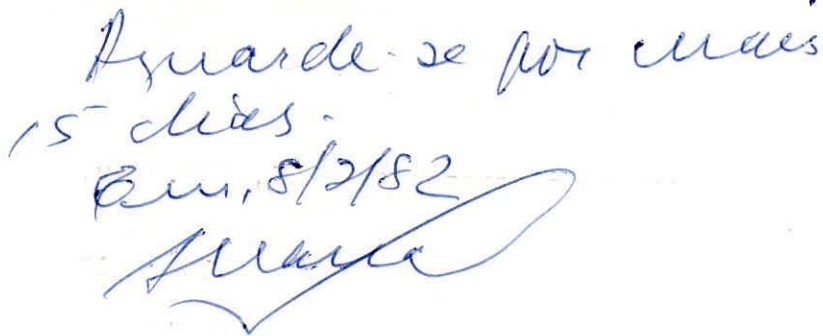 Aguarde-se por mais
15 dias.
Em, 8/2/82